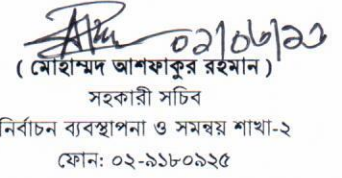 ০২/০৮/২৩
( মোহাম্মদ আশফাকুর রহমান )
সহকারী সচিব
নির্বাচন ব্যবস্থাপনা ও সমন্বয় শাখা-২
ফোন: ০২-৯১৮০৯২৫